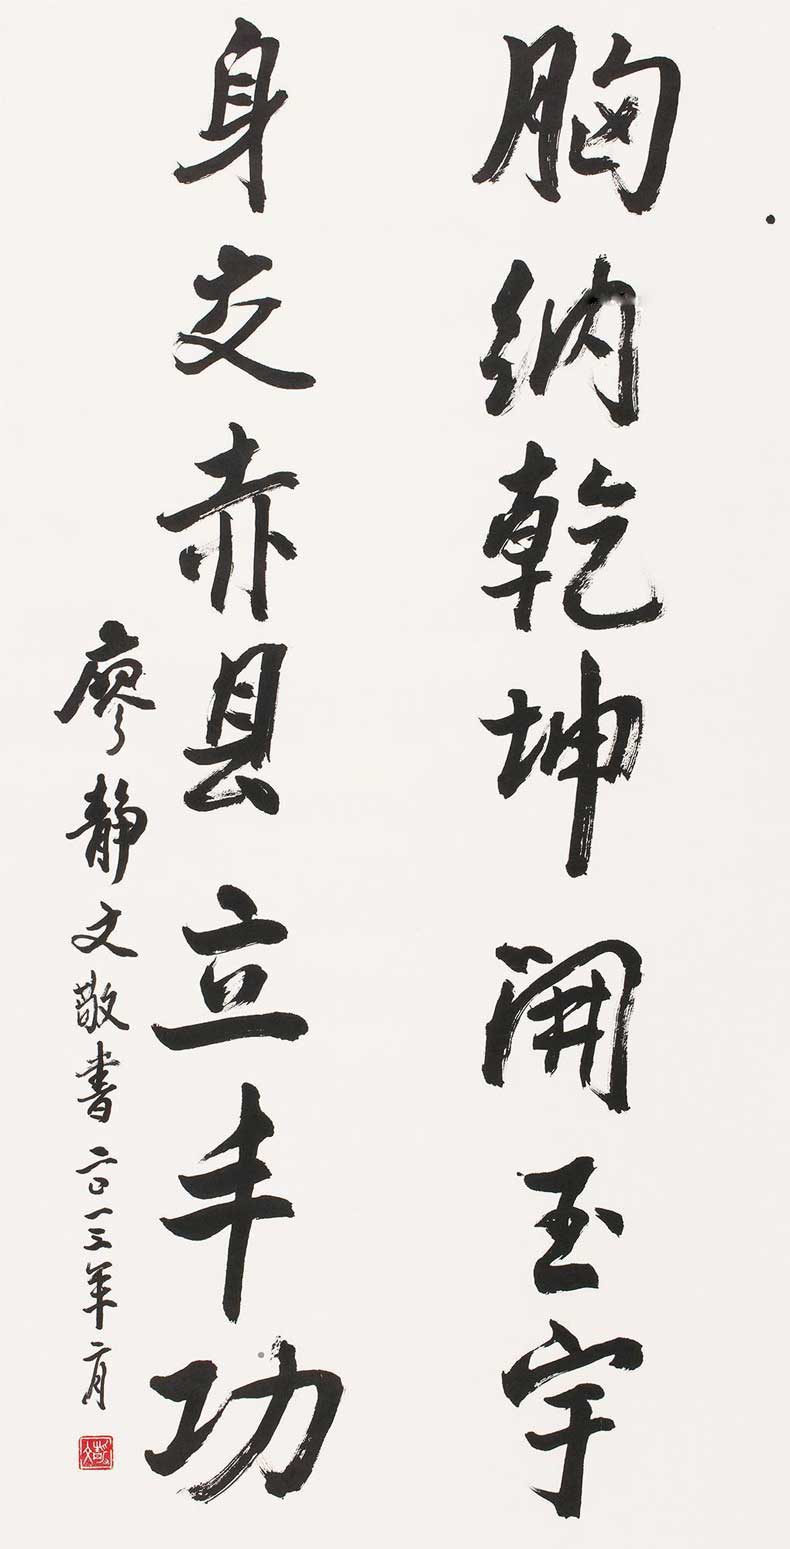 胸纳乾坤開玉宇
身交赤县立丰功
廖静文敬书二〇一三年二月